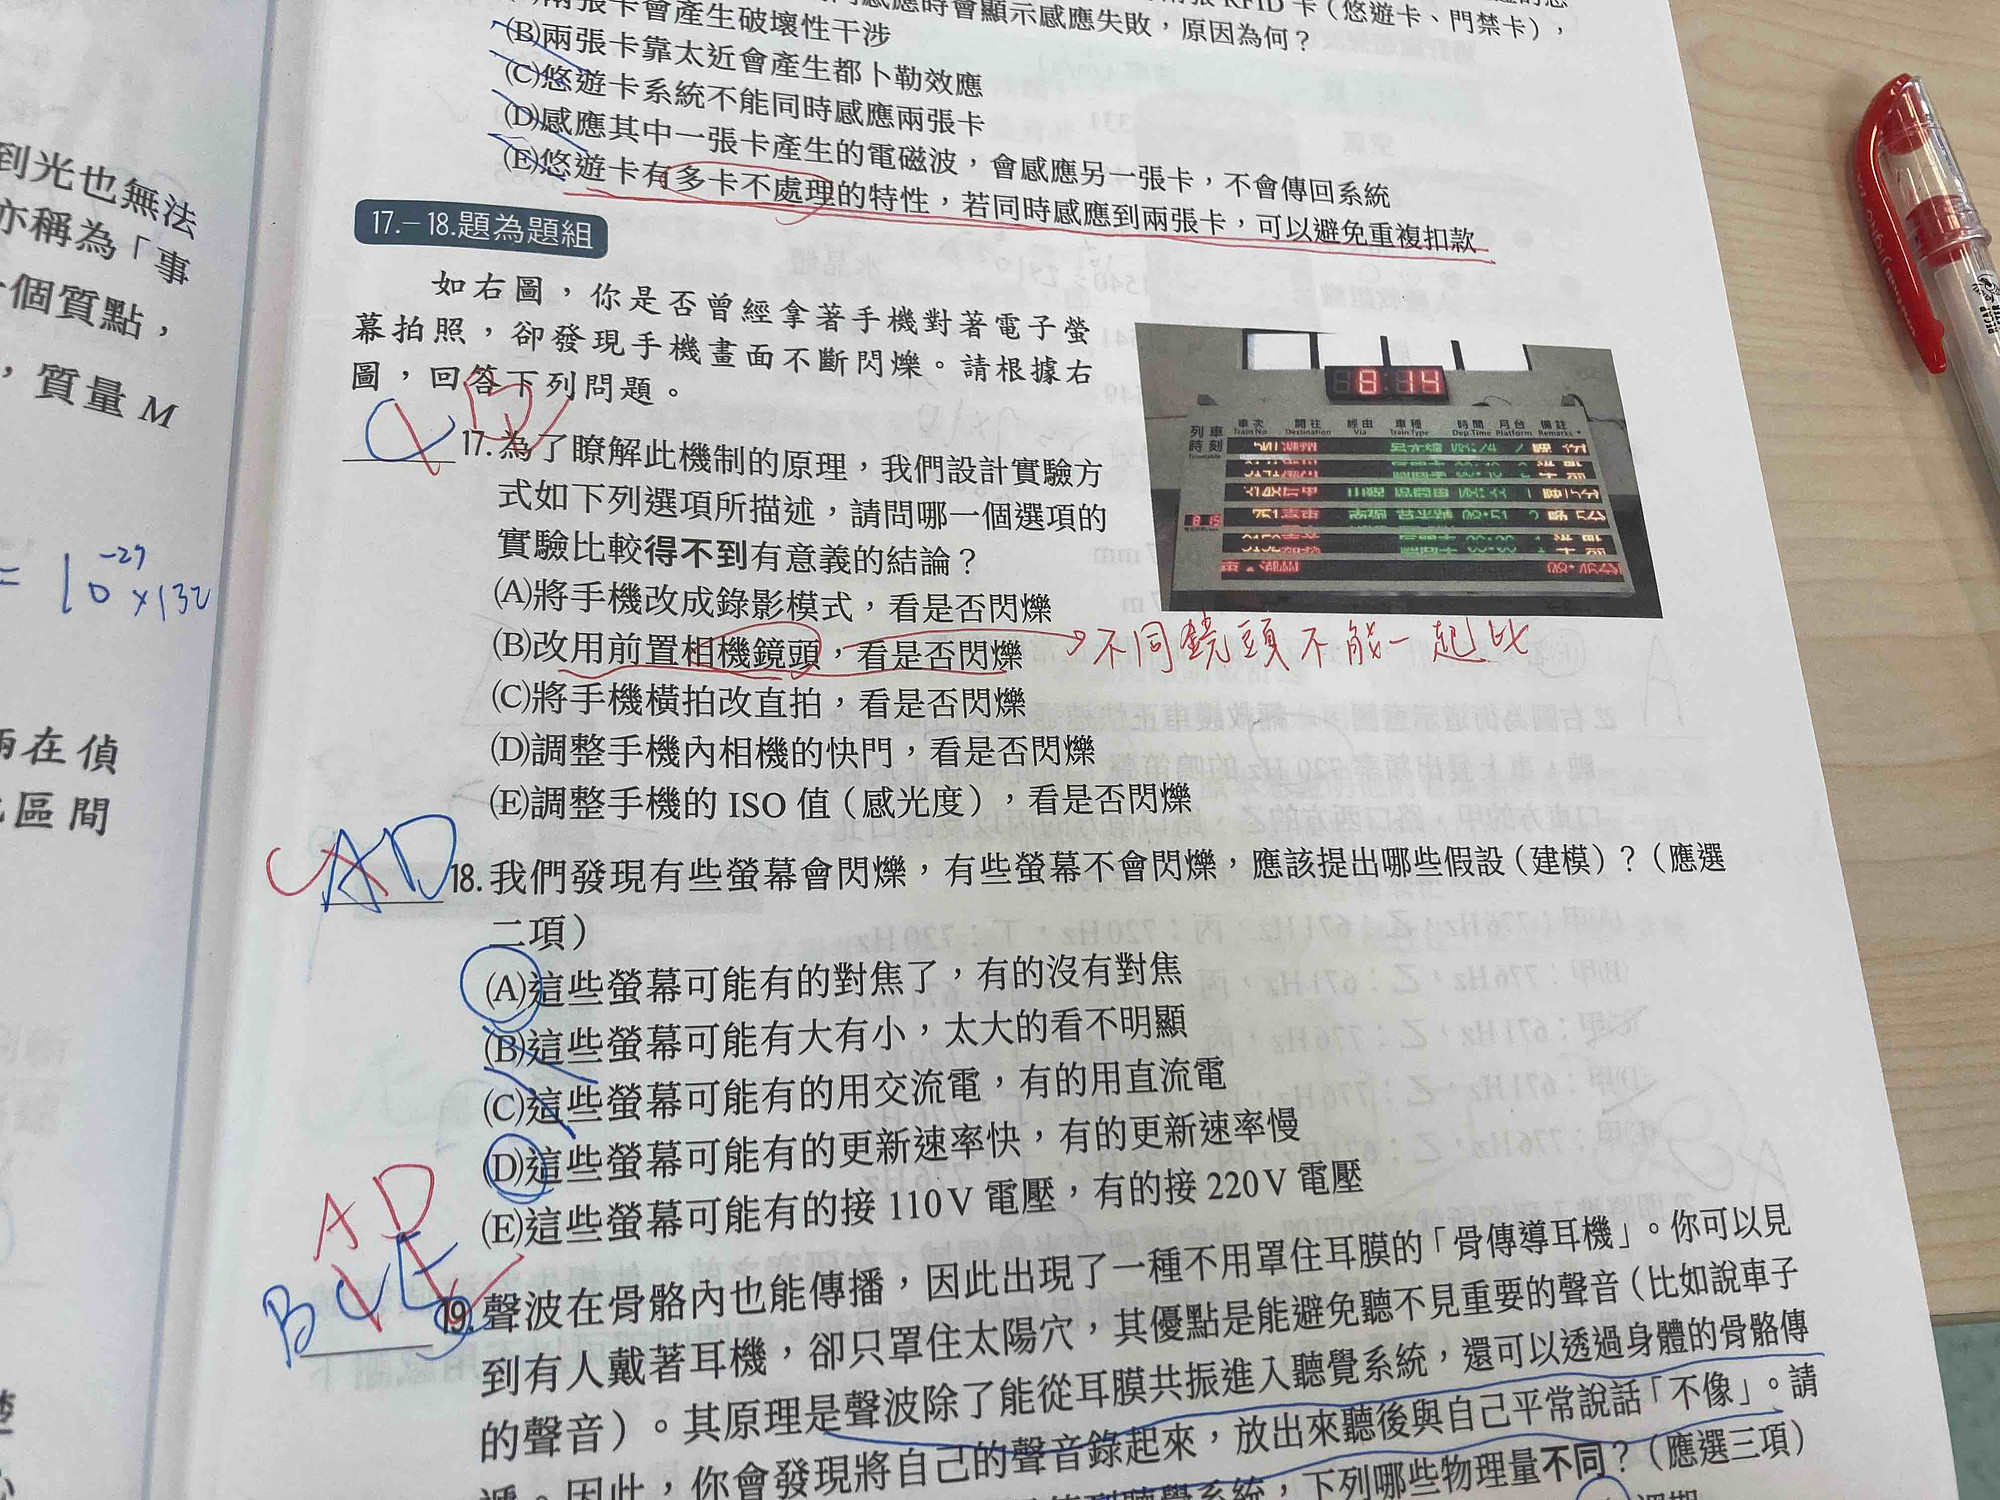 兩張卡會產生破壞性干涉
感應時會顯示感應失敗，原因為何？
RFID 卡（悠遊卡、門禁卡），
(B)兩張卡靠太近會產生都卜勒效應
(C)悠遊卡系統不能同時感應兩張卡
(D)感應其中一張卡產生的電磁波，會感應另一張卡，不會傳回系統
(E)悠遊卡有多卡不處理的特性，若同時感應到兩張卡，可以避免重複扣款
17.－18.題為題組
如右圖，你是否曾經拿著手機對著電子螢
幕拍照，卻發現手機畫面不斷閃爍。請根據右
圖，回答下列問題。
C B
17.為了瞭解此機制的原理，我們設計實驗方
式如下列選項所描述，請問哪一個選項的
實驗比較得不到有意義的結論？
(A)將手機改成錄影模式，看是否閃爍
(B)改用前置相機鏡頭，看是否閃爍
不同鏡頭不能一起比
(C)將手機橫拍改直拍，看是否閃爍
(D)調整手機內相機的快門，看是否閃爍
(E)調整手機的 ISO 值（感光度），看是否閃爍
8:14
列車時刻
車次 開往 經由 車種 時間 月台 備註
Train No. Destination Via Train Type Dep.Time Platform Remarks
8 15
C AD
18.我們發現有些螢幕會閃爍，有些螢幕不會閃爍，應該提出哪些假設（建模）？（應選
二項）
(A)這些螢幕可能有的對焦了，有的沒有對焦
(B)這些螢幕可能有大有小，太大的看不明顯
(C)這些螢幕可能有的用交流電，有的用直流電
(D)這些螢幕可能有的更新速率快，有的更新速率慢
(E)這些螢幕可能有的接 110V 電壓，有的接 220V 電壓
AD
BCE
19.聲波在骨骼內也能傳播，因此出現了一種不用罩住耳膜的「骨傳導耳機」。你可以見
到有人戴著耳機，卻只罩住太陽穴，其優點是能避免聽不見重要的聲音（比如說車子
的聲音）。其原理是聲波除了能從耳膜共振進入聽覺系統，還可以透過身體的骨骼傳
遞。因此，你會發現將自己的聲音錄起來，放出來聽後與自己平常說話「不像」。請
聽覺系統，下列哪些物理量不同？（應選三項）
到光也無法
亦稱為「事
個質點，
，質量 M
= 10⁻²⁹ × 132
兩在偵
區間